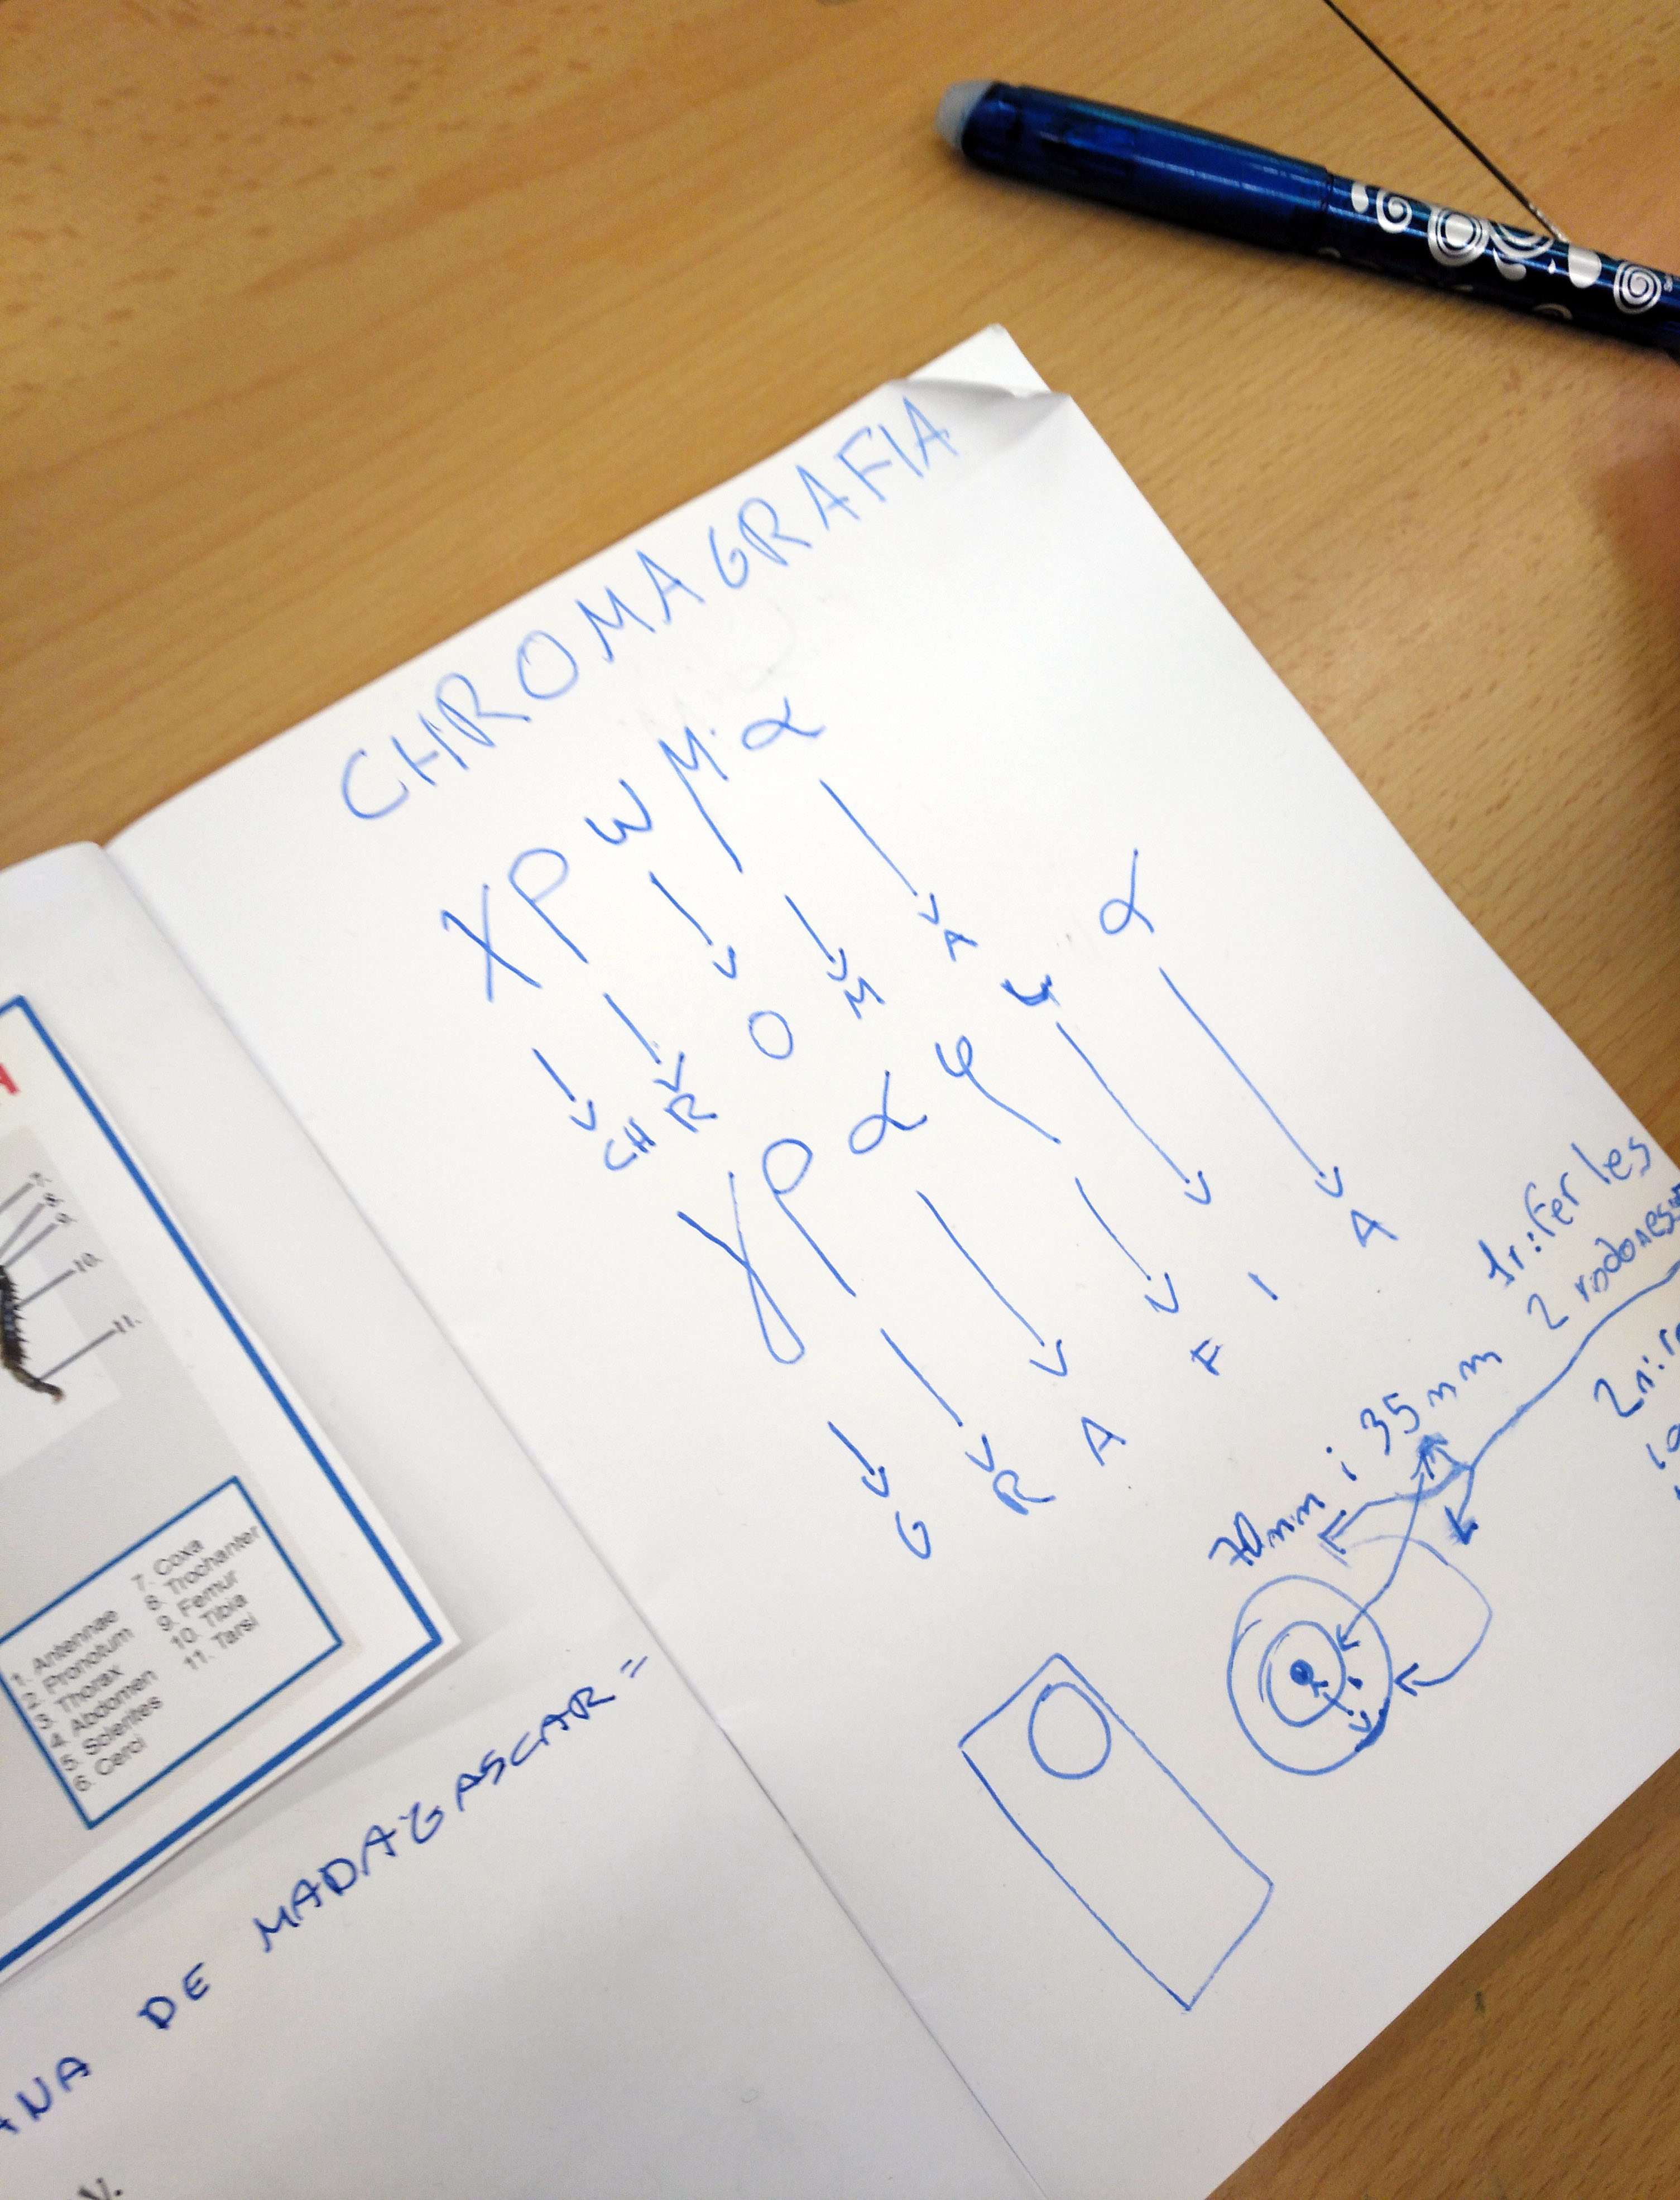 CHROMAGRAFIA
χρωμα
CH R O M A
γραφυα
G R A F I A
1r: fer les
2 rodones
70mm i 35mm
7.
8.
9.
10.
11.
1. Antennae
2. Pronotum
3. Thorax
4. Abdomen
5. Sclerites
6. Cerci
7. Coxa
8. Trochanter
9. Femur
10. Tibia
11. Tarsi
ANA DE MADAGASCAR=